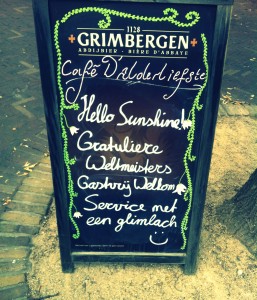 1128
GRIMBERGEN
ABDIJBIER · BIÈRE D'ABBAYE
Café D'Alderliefste
Hello Sunshine!
Gratuliere
Weltmeisters
Gastvrij Welkom
Service met
een glimlach